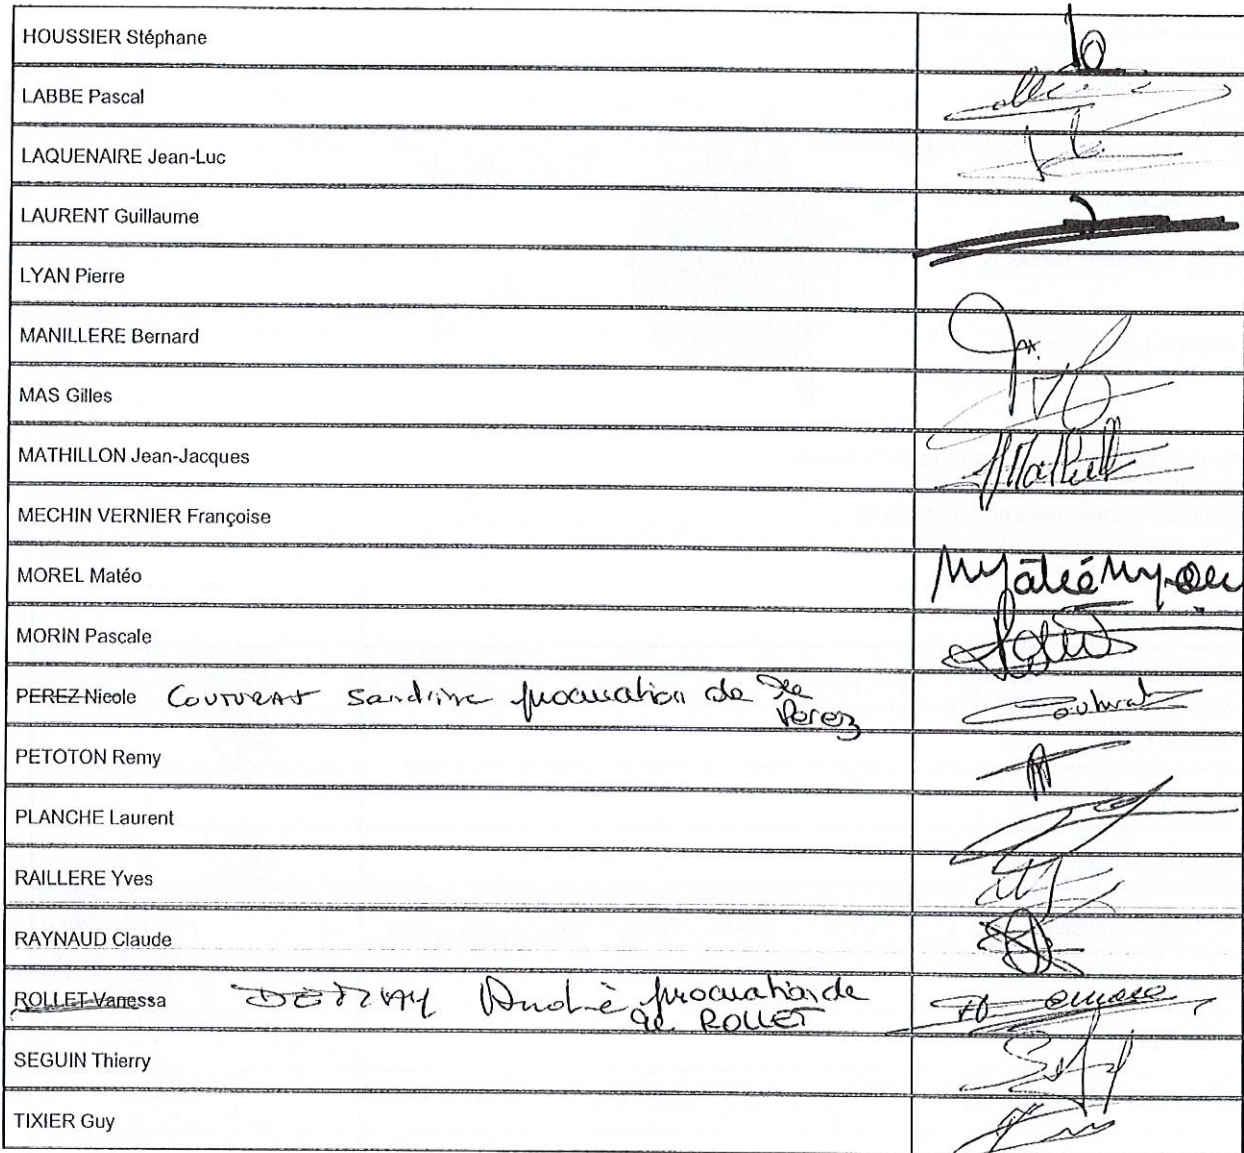 HOUSSIER Stéphane
LABBE Pascal
LAQUENAIRE Jean-Luc
LAURENT Guillaume
LYAN Pierre
MANILLERE Bernard
MAS Gilles
MATHILLON Jean-Jacques
MECHIN VERNIER Françoise
MOREL Matéo
MORIN Pascale
PEREZ Nicole COUTURAT Sandrine procuration de
Perez
Couturat
PETOTON Remy
PLANCHE Laurent
RAILLERE Yves
RAYNAUD Claude
ROLLET Vanessa André procuration de
ROLLET
SEGUIN Thierry
TIXIER Guy